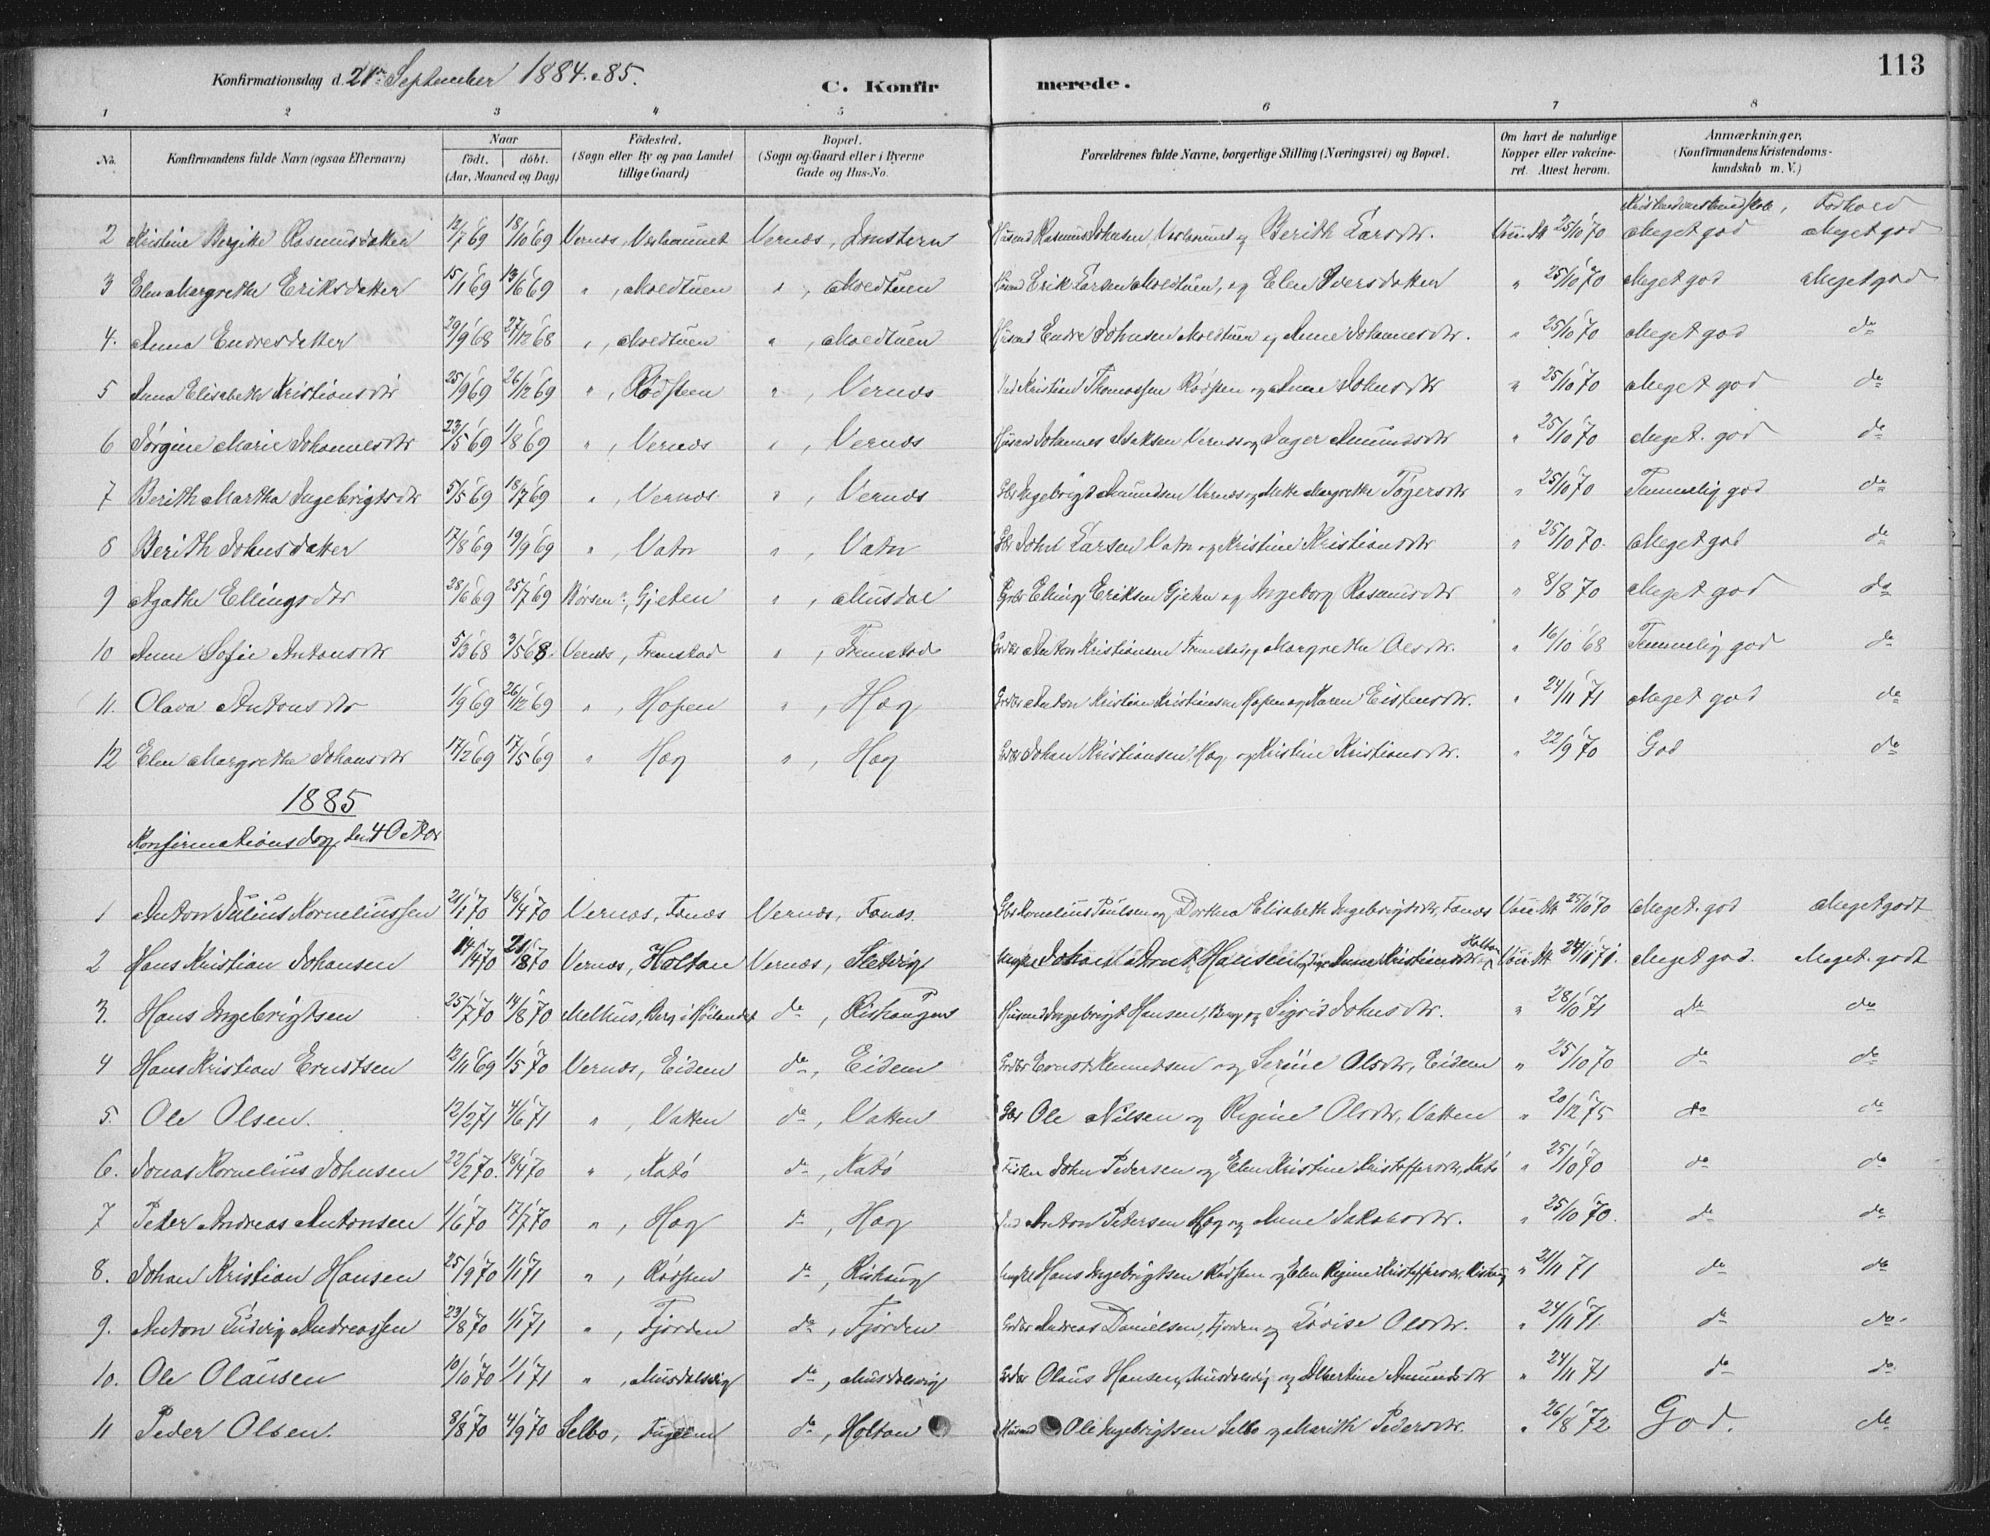 113
Konfirmationsdag d. 21de September 1884-85.
C. Konfirmerede.
1 2 3 4 5 6 7 8
No. Konfirmandens fulde Navn (ogsaa Efternavn) Naar født. døbt. (Aar, Maaned og Dag) Fødested. (Sogn eller By og paa Landet tillige Gaard) Bopæl. (Sogn og Gaard eller i Byerne Gade og Hus-No. Forældrenes fulde Navne, borgerlige Stilling (Næringsvei) og Bopæl. Om havt de naturlige Kopper eller vakcineret. Attest herom. Anmærkninger, (Konfirmandens Kristendomskundskab m. V.)
Kristendomskundskab, Forhold
2 Kristine Bergitte Rasmusdatter 12/7 69 18/10 69 Vernæs, Vernæs, Rasmus Johnsen og Berith Larsdtr. 25/10 70 Meget god Meget god
3 Elen Margrethe Eriksdatter 15/1 69 13/6 69 " , Moldtuen " , Moldtuen Husmd Erik Larsen Moldtuen, og Elen Iversdatter " 25/10 70 Meget god Meget god
4. Anna Endresdatter 29/9 68 27/12 68 " , Moldtuen " , Moldtuen Husmd Endre Johnsen Moldtuen og Anne Johannesdtr. " 25/10 70 Meget god do
5 Anna Elisabeth Kristiansdtr 25/9 69 26/12 69 " , Rødsteen " , Vernæs Kristian Thomassen Rødsten og Anne Johnsdtr " 25/10 70 Meget god do
6 Jørgine Marie Johannesdtr 23/5 69 1/8 69 " , Vernæs " , Vernæs Husmd Johannes Isaksen Vernæs og Inger Amundsdtr " 25/10 70 Meget god do
7 Berith Martha Ingebrigtsdtr 5/5 69 18/7 69 " , Vernæs " , Vernæs Gbr Ingebrigt Amundsen Vernæs og Mette Margrethe Tøgersdtr " 25/10 70 Temmelig god do
8 Berith Johnsdatter 17/8 69 19/9 69 " , Vatn " , Vatn Gbr John Larsen Vatn og Kristine Kristiansdtr " 25/10 70. Meget god do
9 Agathe Ellingsdtr 28/6 69 25/7 69 Børsen, Gjeten " , Musdal Elling Eriksen Gjeten og Ingeborg Rasmusdtr " 8/8 70 Meget god do
10 Anne Sofie Antonsdtr 5/3 68 3/5 68. Vernæs, Fremstad " , Fremstad Anton Kristiansen Fremstad og Margrethe Olsdtr. " 16/10 68 Temmelig god do
11. Olava Antonsdtr 1/9 69 26/12 69 " , Hopen " , Høg Anton Kristian Kristiansen Hopen og Karen Eistensdtr. " 24/11 71 Meget god do
12 Elen Margrethe Johansdtr 17/2 69 17/5 69 " Høg " , Høg Johan Kristiansen Høg og Kristine Kristiansdtr. " 22/9 70 God do
1885
Konfirmationsdag den 4 Octbr
1 Anton Julius Korneliussen 21/1 70 18/4 70 Vernæs, Fanæs Vernæs, Fanæs. Gbr Kornelius Paulsen og Dorthea Elisabeth Ingebrigtsdtr, Fanæs 25/10 70 Meget god Meget godt
2 Hans Kristian Johansen 14/4 70 21/8 70 Vernæs, Holtan Vernæs, Sletvig Johan Arnt Hansen og Anne Kristiansdtr Holtan 24/11 71. Meget god. Meget godt
3. Hans Ingebrigtsen 25/7 70 14/8 70 Melhus, Berg i Høilandet do, Rishaugen Husmd Ingebrigt Hansen, Berg og Sigrid Johnsdtr. " 28/10 71 do do
4 Hans Kristian Ernstsen 12/11 69 1/5 70 Vernæs, Eidem do, Eidem Ernst Knudtsen og Serine Olsdtr, Eidem " 25/10 70 do do
5. Ole Olsen. 12/2 71 4/6 71 " , Vatten do, Vatten Gbr Ole Nilsen og Regine Olsdtr, Vatten " 20/12 75 do do
6. Jonas Kornelius Johnsen 22/2 70. 18/4 70 " , Katø do, Katø John Pedersen og Elen Kristine Kristoffersdtr, Katø " 25/10 70 do do
7 Peter Andreas Antonsen 1/6 70 17/7 70 " , Høg do, Høg Anton Petersen Høg og Anne Jakobsdtr. " 25/10 70. do do
8. Johan Kristian Hansen 25/9 70 1/1 71 " , Rødsten do, Rishaug Hans Ingebrigtsen Rødsten og Elen Regine Kristoffersdtr, Rishaug " 21/11 71 do do
9. Anton Ludvig Andreassen 23/8 70 1/1 71 " , Fjorden do, Fjorden Andreas Danielsen, Fjorden og Lovise Olsdtr. " 24/11 71. do do.
10. Ole Olausen 10/10 70 1/1 71 " , Musdalsvig do, Musdalsvig Olaus Hansen, Musdalsvig og Albertine Amundsdtr " 24/11 71 do do
11 Peder Olsen. 8/8 70 4/9 70 Selbo, do, Holtan Husmd Ole Ingebrigtsen Selbo og Marith Pedersdtr. " 26/8 72 God. do